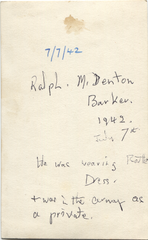 7/7/42
Ralph. M. Denton
Barker.
1942.
July 7th
He was wearing
Dress.
+ was in the army as
a private.